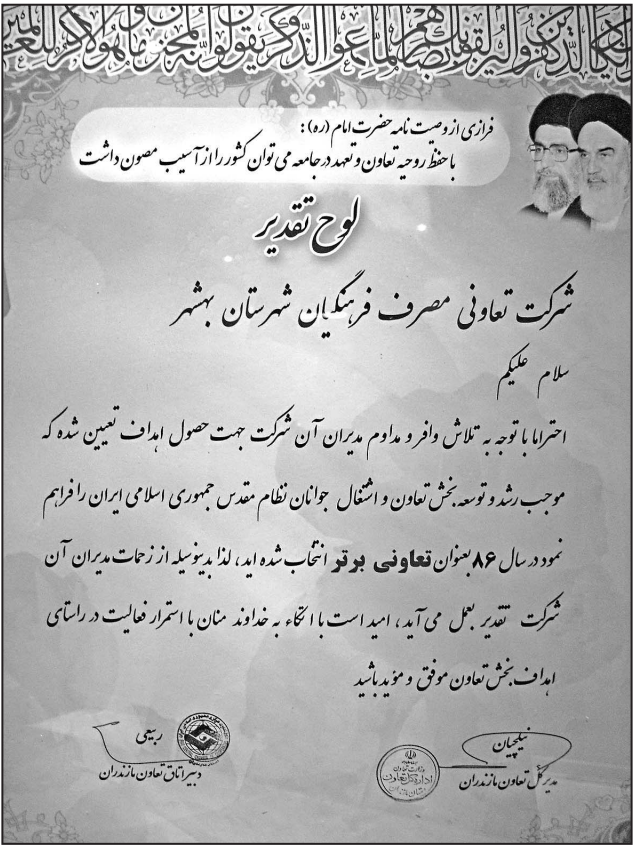 فرازی از وصیت نامه حضرت امام (ره):
با حفظ روحیه تعاون و تعهد در جامعه می توان کشور را از آسیب مصون داشت
لوح تقدیر
شرکت تعاونی مصرف فرهنگیان شهرستان بهشهر
سلام علیکم
احتراما با توجه به تلاش وافر و مداوم مدیران آن شرکت جهت حصول اهداف تعیین شده که
موجب رشد و توسعه بخش تعاون و اشتغال جوانان نظام مقدس جمهوری اسلامی ایران را فراهم
نمود در سال ۸۶ بعنوان تعاونی برتر انتخاب شده اید، لذا بدینوسیله از زحمات مدیران آن
شرکت تقدیر بعمل می آید، امید است با اتکاء به خداوند منان با استمرار فعالیت در راستای
اهداف بخش تعاون موفق و مؤید باشید
نیلچیان
مدیرکل تعاون مازندران
وزارت تعاون
اداره کل تعاون
ربیعی
دبیر اتاق تعاون مازندران